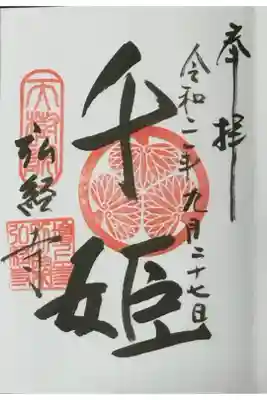 奉拝
令和二年九月二十七日
千姫
弘経寺